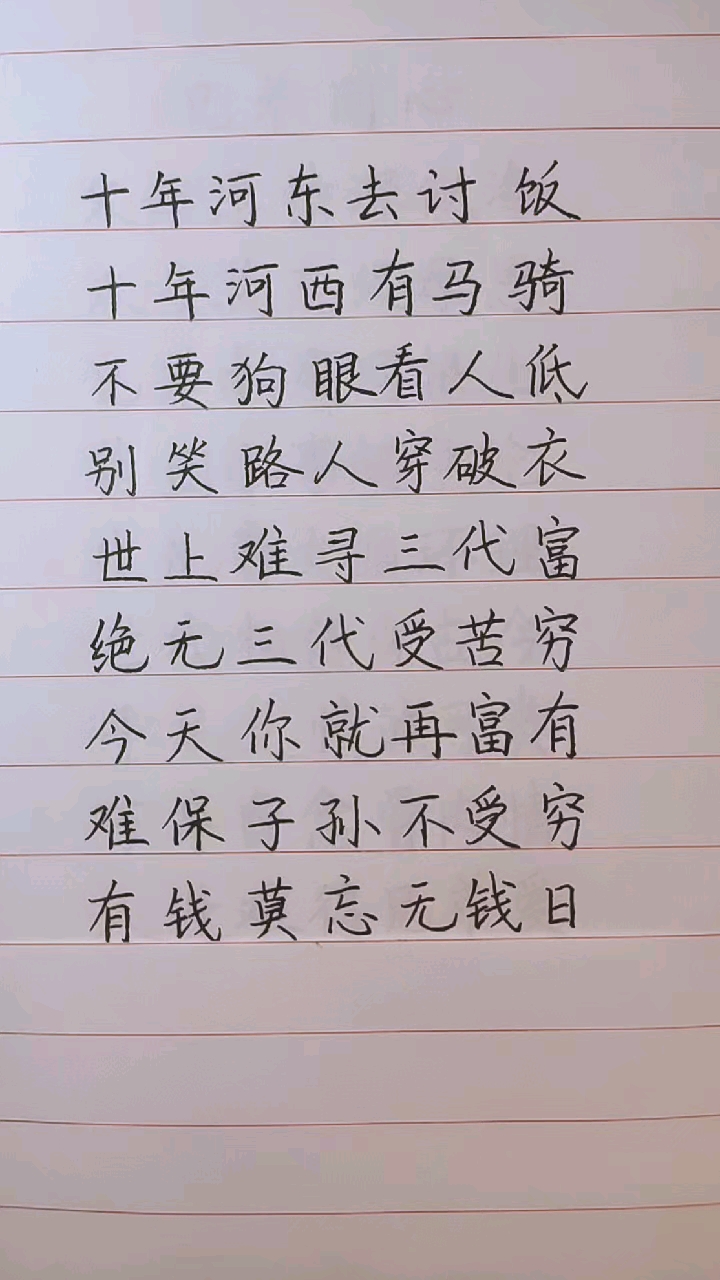 十年河东去讨饭
十年河西有马骑
不要狗眼看人低
别笑路人穿破衣
世上难寻三代富
绝无三代受苦穷
今天你就再富有
难保子孙不受穷
有钱莫忘无钱日